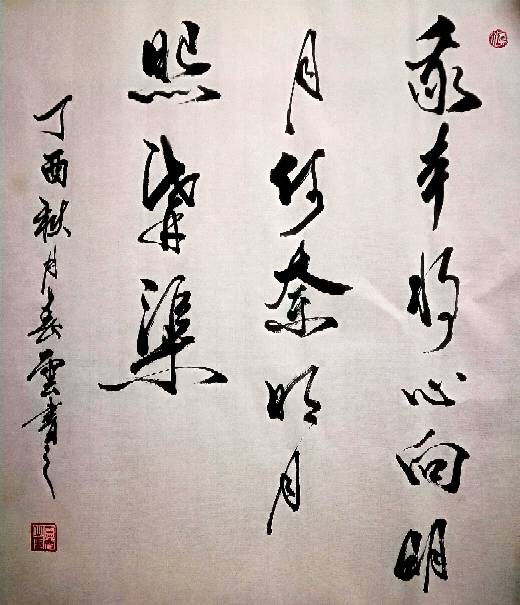 我本将心向明
月何奈明月
照沟渠
丁酉秋月春云书之